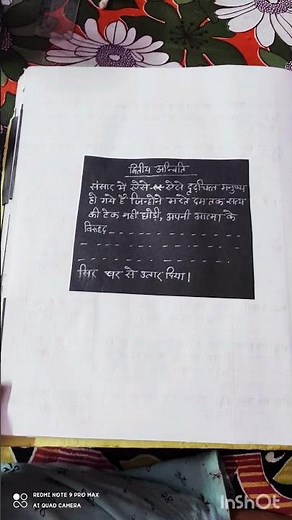 द्वितीय अन्विति
संसार में ऐसे-ऐसे दृढ़चित्त मनुष्य
हो गये हैं जिन्होंने मरते दम तक सत्य
की टेक नहीं छोड़ी, अपनी आत्मा के
विरुद्ध _ _ _ _ _ _ _ _ _ _ _ _ _
_ _ _ _ _ _ _ _ _ _ _ _ _ _ _ _
_ _ _ _ _ _ _ _ _ _ _ _ _ _ _ _
सिर पर से उतार दिया।
REDMI NOTE 9 PRO MAX
AI QUAD CAMERA
InShOt